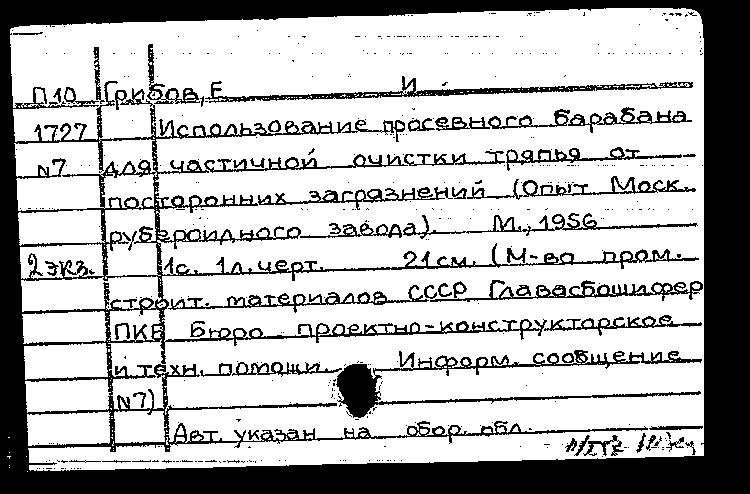 П10 Грибов, Е И
1727 Использование просевного барабана
N7 для частичной очистки тряпья от
посторонних загрязнений (Опыт Моск.
рубероидного завода). М., 1956
2 экз. 1с. 1л. черт. 21см. (М-во пром.
строит. материалов СССР Главасбошифер
ПКБ Бюро проектно-конструкторское
и техн. помощи. Информ. сообщение
N7)
Авт. указан на обор. обл.